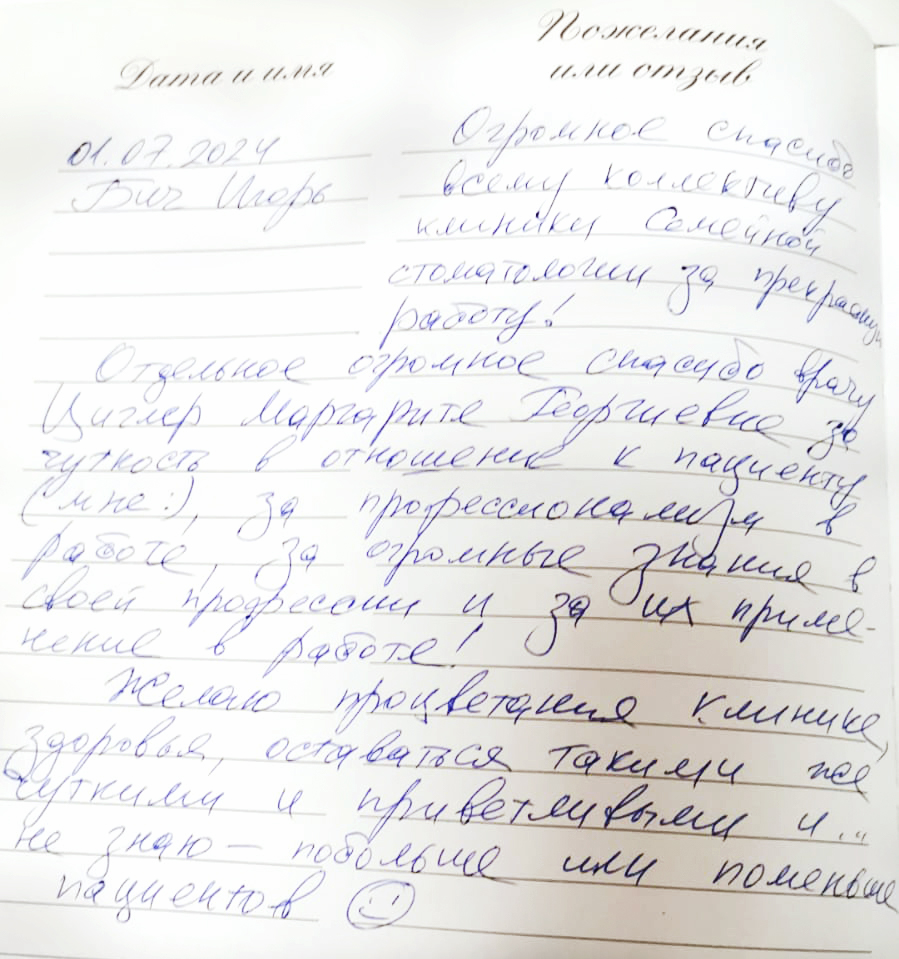 Дата и имя
Пожелания
или отзыв
01.07.2024
Бич Игорь
Огромное спасибо
всему коллективу
клиники Семейной
стоматологии за прекрасную
работу!
Отдельное огромное спасибо врачу
Циглер Маргарите Георгиевне за
чуткость в отношение к пациенту
(мне:), за профессионализм в
работе, за огромные знания в
своей профессии и за их приме-
нение в работе!
Желаю процветания клинике,
здоровья, оставаться такими же
чуткими и приветливыми и...
не знаю – побольше или поменьше
пациентов ☺